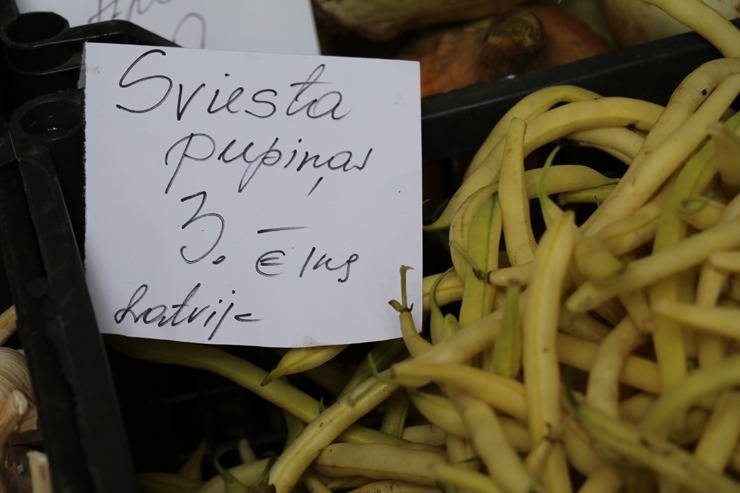 Sviesta
pupiņas
3. –
€ 1kg
Latvija